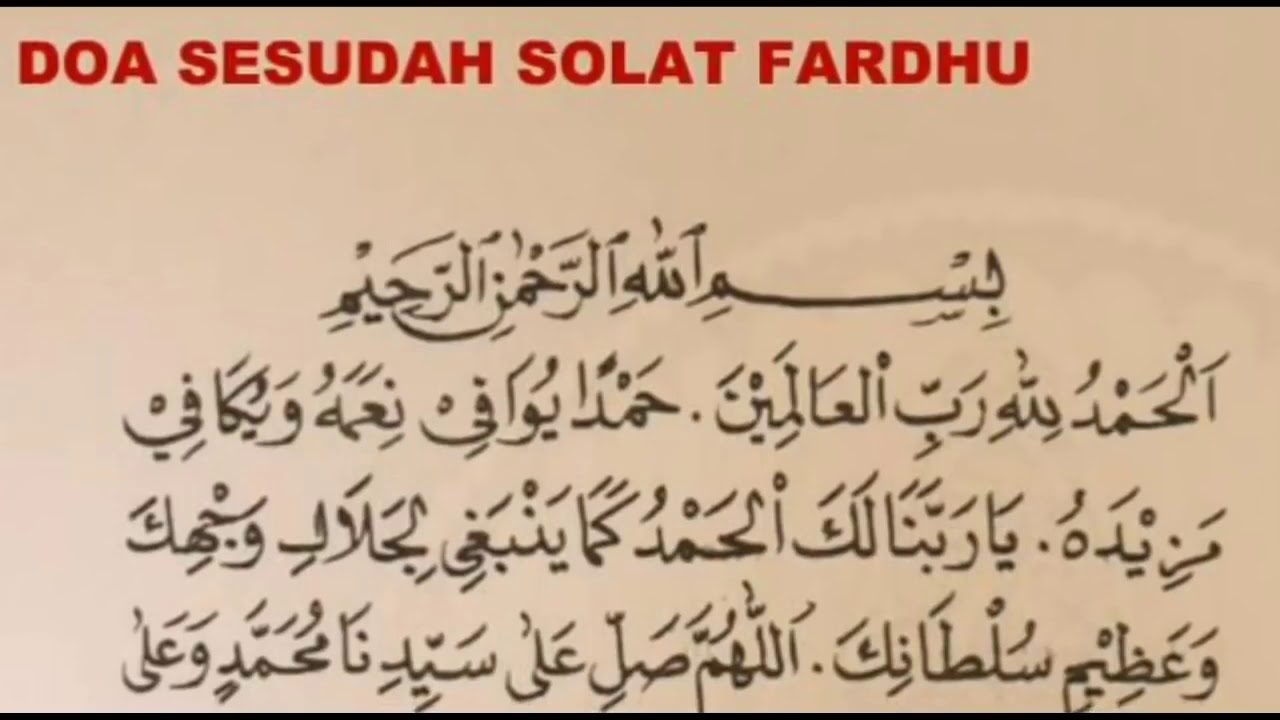 DOA SESUDAH SOLAT FARDHU
بِسْمِ ٱللّٰهِ ٱلرَّحْمٰنِ ٱلرَّحِيْمِ
اَلْحَمْدُ لِلّٰهِ رَبِّ ٱلْعَالَمِيْنَ. حَمْدًا يُوَافِيْ نِعَمَهُ وَيُكَافِيْ
مَزِيْدَهُ. يَا رَبَّنَا لَكَ ٱلْحَمْدُ كَمَا يَنْبَغِي لِجَلَالِ وَجْهِكَ
وَعَظِيْمِ سُلْطَانِكَ. اَللّٰهُمَّ صَلِّ عَلىٰ سَيِّدِنَا مُحَمَّدٍ وَعَلىٰ